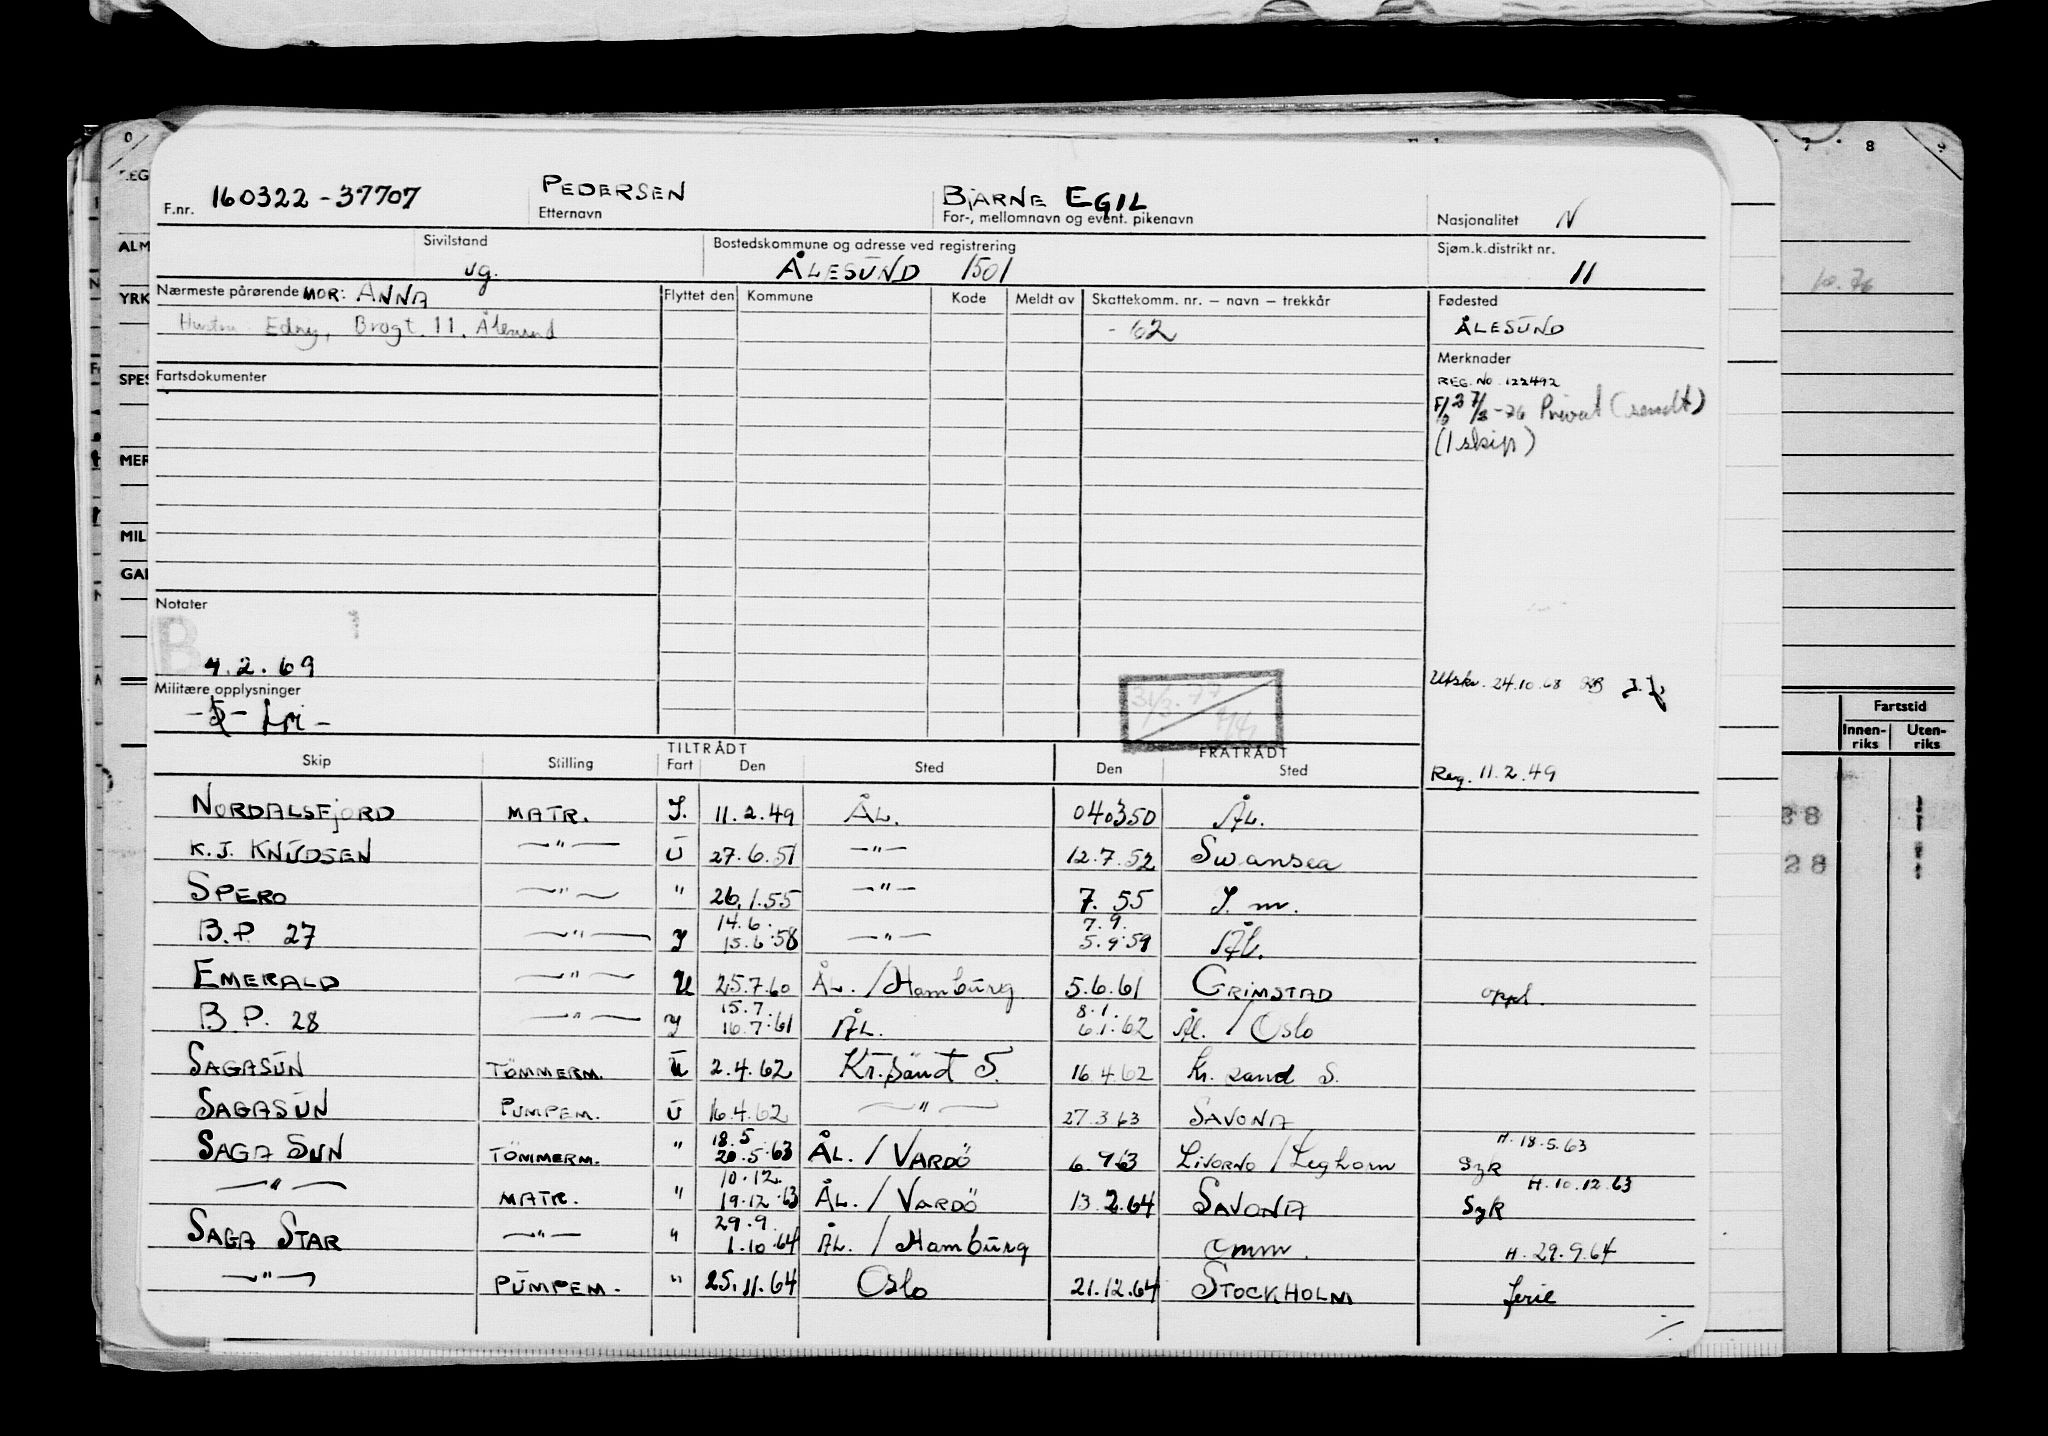 F.nr. 160322-37707 PEDERSEN Etternavn BJARNE EGIL For-, mellomnavn og event. pikenavn Nasjonalitet N
Sivilstand ug. Bostedskommune og adresse ved registrering ÅLESUND 1501 Sjøm.k.distrikt nr. 11
Nærmeste pårørende MOR: ANNA Flyttet den Kommune Kode Meldt av Skattekomm. nr. – navn – trekkår Fødested
Hustru Edny, Brogt. 11, Ålesund - 62 ÅLESUND
Merknader
Fartsdokumenter REG. No. 122492
-76 Privat (sendt)
(1 skip)
Notater
B 1
4.2.69
Utskr. 24.10.68
Militære opplysninger
31/3.77
TILTRÅDT FRATRÅDT
Skip Stilling Fart Den Sted Den Sted Reg. 11.2.49
NORDALSFJORD MATR. I. 11.2.49 ÅL. 040350 ÅL.
K.J. KNUDSEN —"— U 27.6.51 —"— 12.7.52 Swansea
SPERO —"— " 26.1.55 —"— 7. 55 I. m.
14.6. 7.9.
B.P. 27 —"— I 15.6.58 —"— 5.9.59 ÅL.
EMERALD —"— U 25.7.60 ÅL. / Hamburg 5.6.61 GRIMSTAD oppl.
15.7. 8.1.
B.P. 28 —"— I 16.7.61 ÅL. 6.1.62 ÅL. / Oslo
SAGASUN TÖMMERM. U 2.4.62 Kr.sand S. 16.4.62 Kr. sand S.
SAGASUN PUMPEM. U 16.4.62 —"— 27.3.63 SAVONA
18.5 H. 18.5.63
SAGA SUN TÖMMERM. " 20.5.63 ÅL. / VARDÖ 6.9.63 LIVORNO / Leghorn Syk
10.12. H. 10.12.63
—"— MATR. " 19.12.63 ÅL. / VARDÖ 13.2.64 SAVONA Syk
29.9.
SAGA STAR —"— " 1.10.64 ÅL. / Hamburg omm. H. 29.9.64
—"— PUMPEM. " 25.11.64 Oslo 21.12.64 STOCKHOLM ferie
ALM
YRK
SPES
MER
MIL
7 8 9
Fartstid
Innen-riks Uten-riks
28